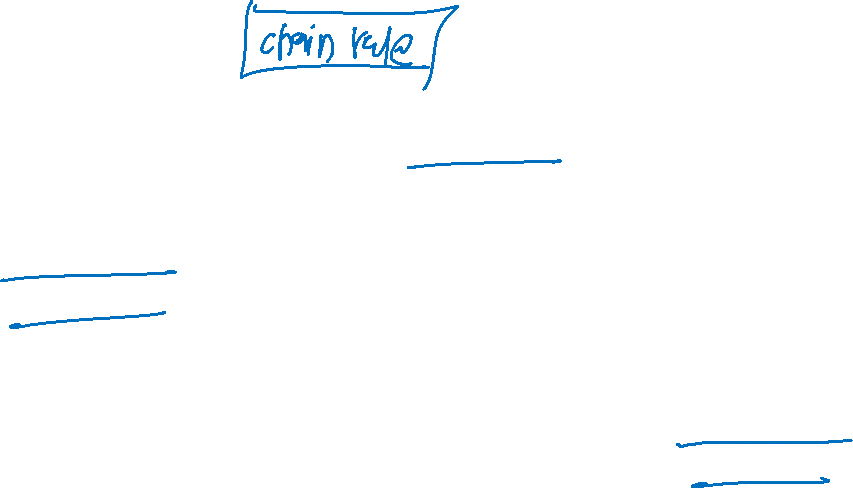 chain rule